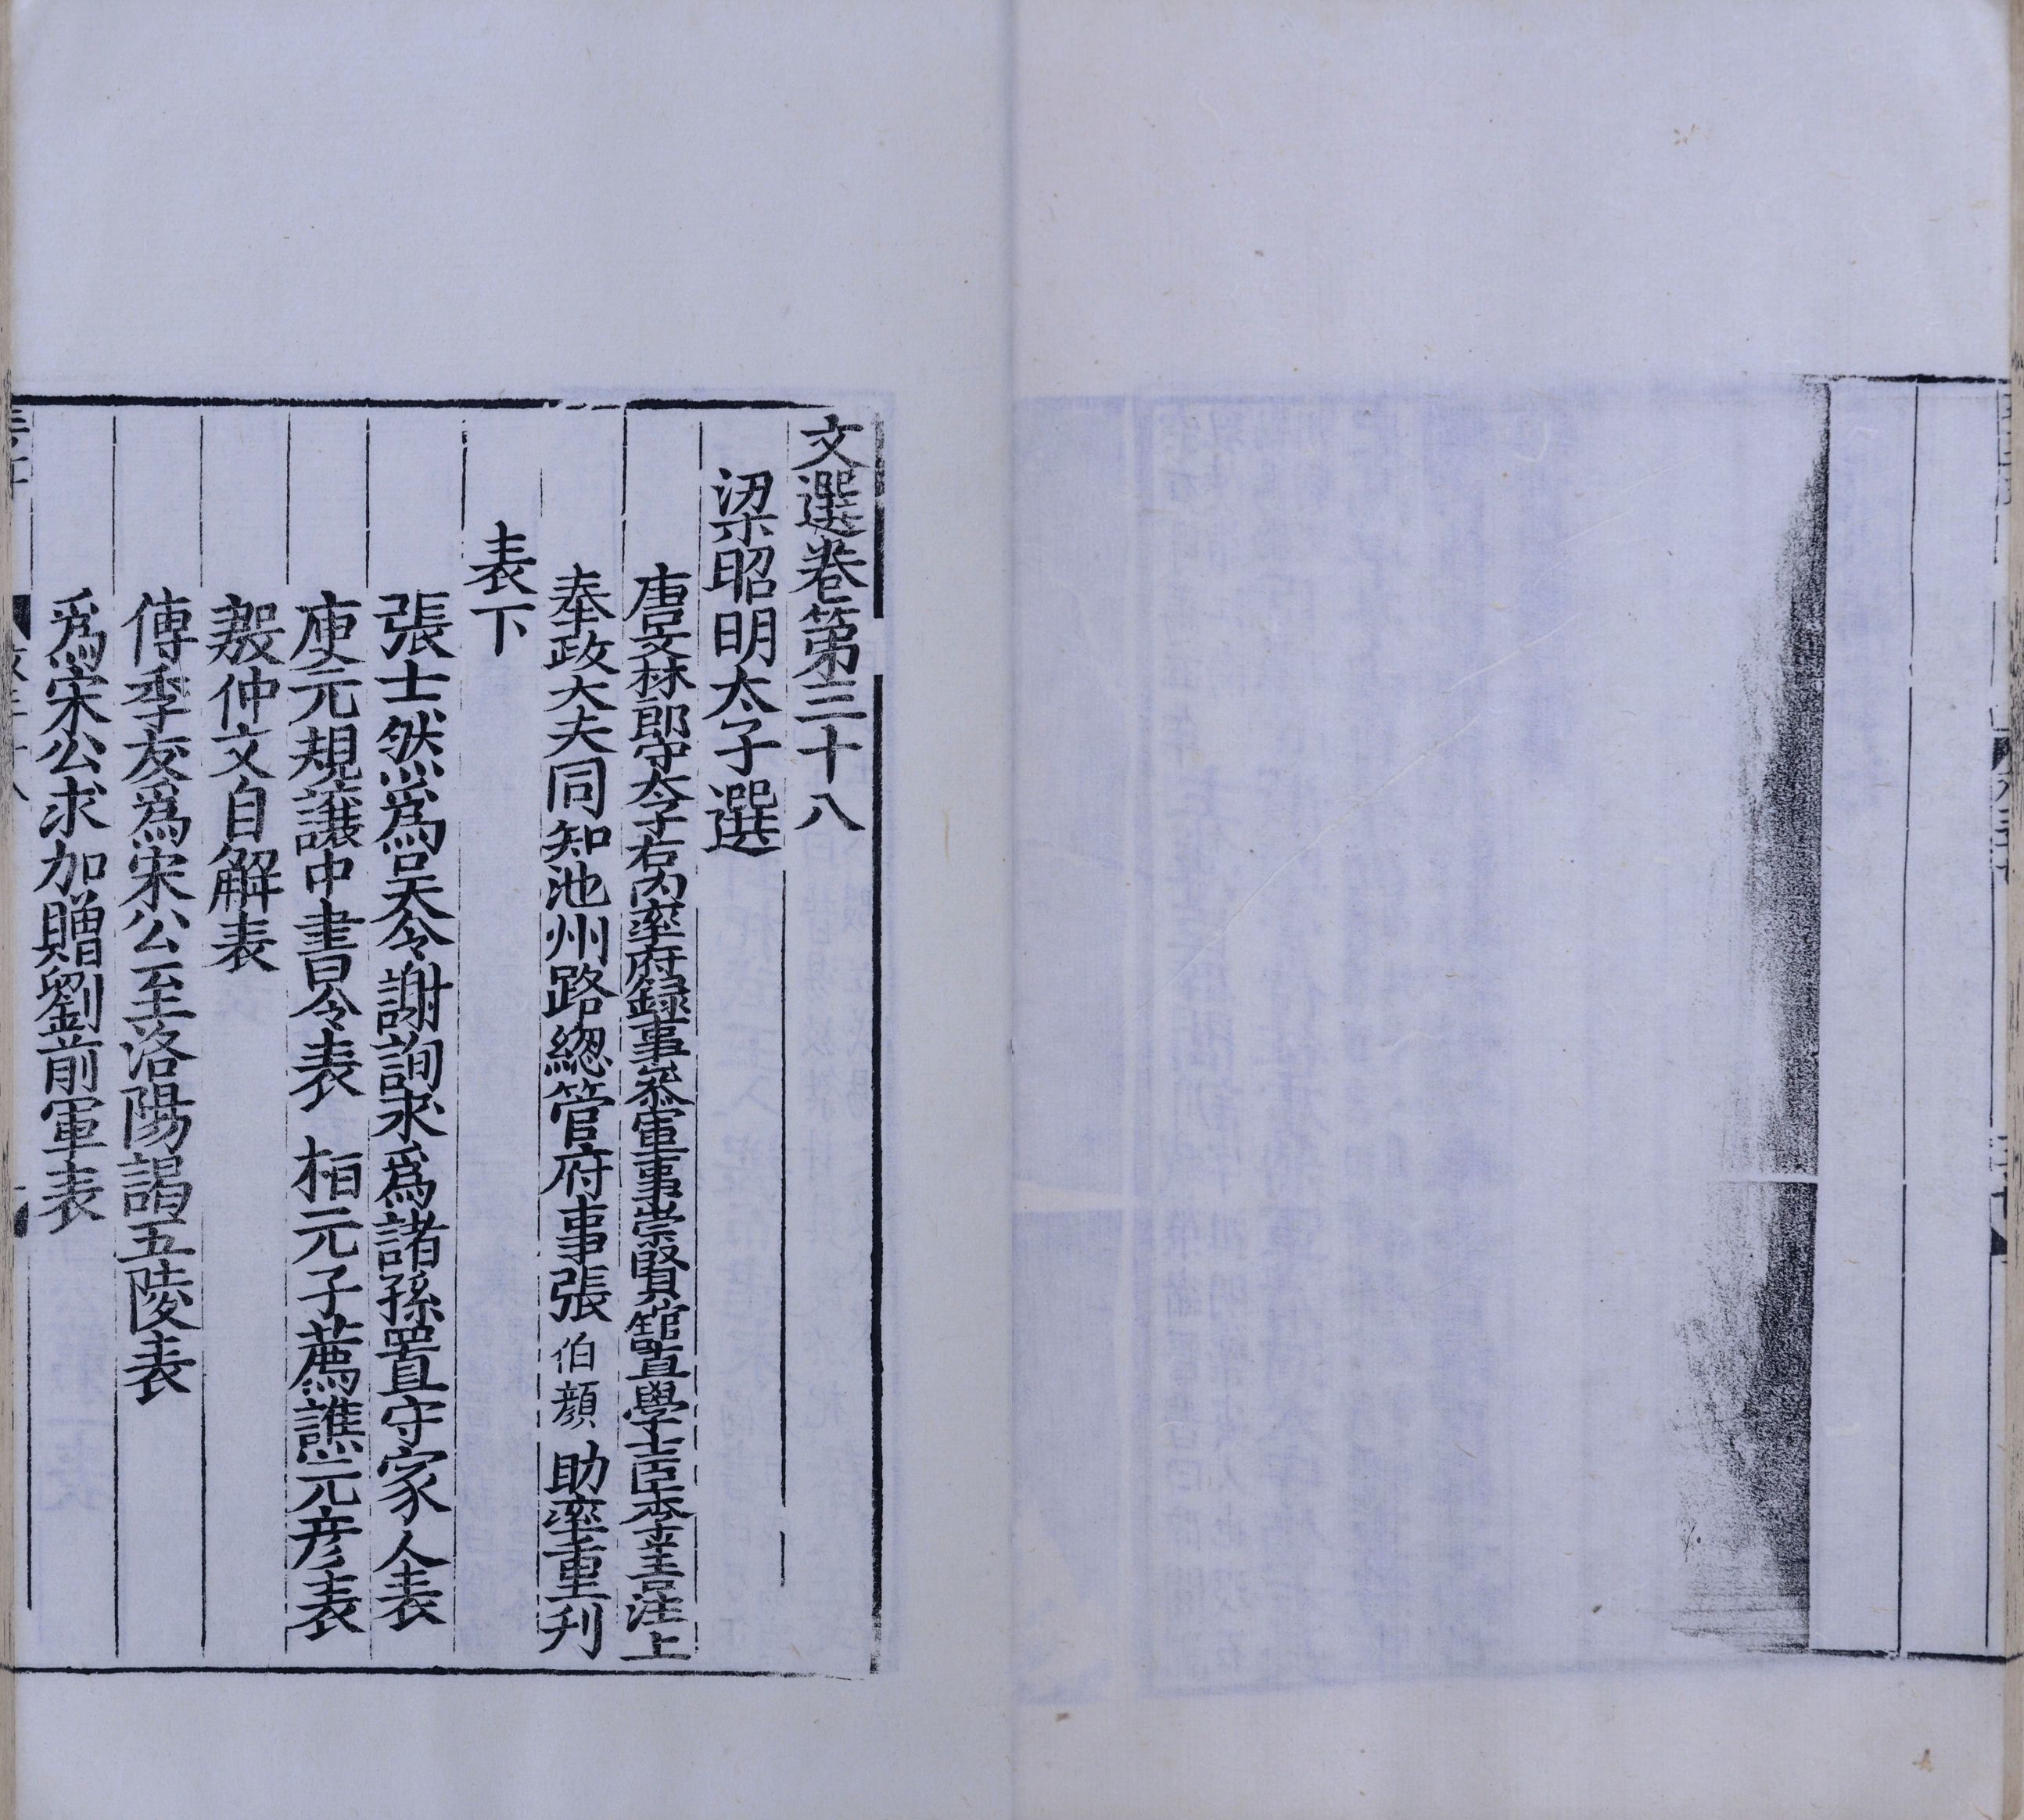 文選卷第三十八
梁昭明太子選
唐文林郎守太子右内率府録事叅軍事崇賢館直學士臣李善注上
奉政大夫同知池州路緫管府事張伯顔助率重刊
表下
張士然爲吳令謝詢求爲諸孫置守冢人表
庾元規讓中書令表 桓元子薦譙元彦表
殷仲文自解表
傅季友爲宋公至洛陽謁五陵表
爲宋公求加贈劉前軍表